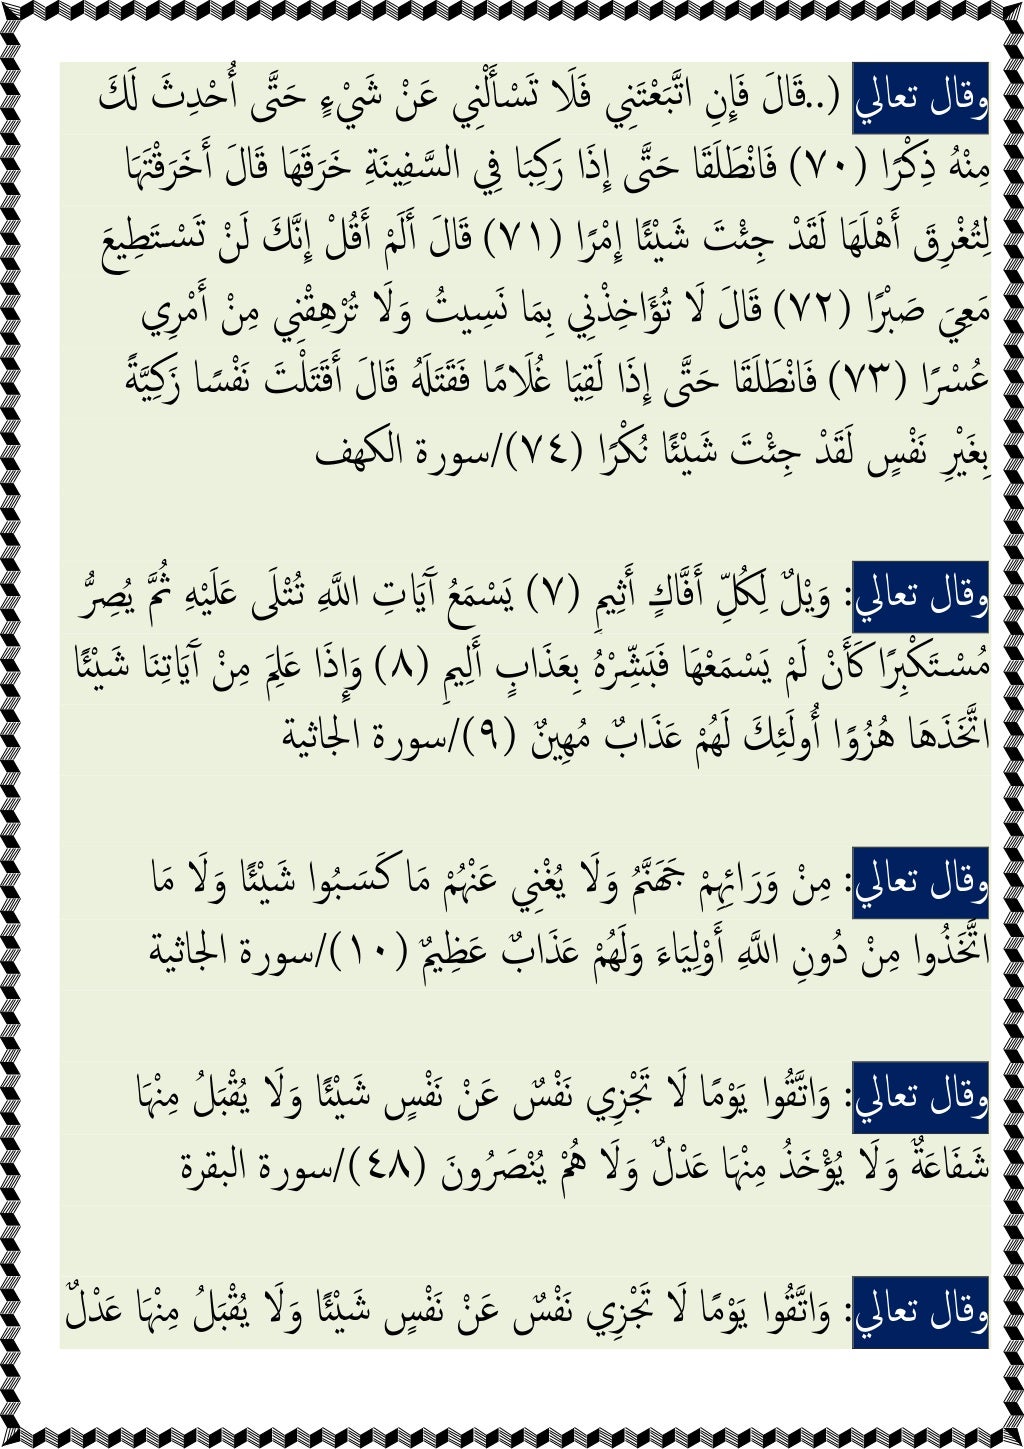 وقال تعالي (..قَالَ فَإِنِ اتَّبَعْتَنِي فَلَا تَسْأَلْنِي عَنْ شَيْءٍ حَتَّى أُحْدِثَ لَكَ
مِنْهُ ذِكْرًا (٧٠) فَانْطَلَقَا حَتَّى إِذَا رَكِبَا فِي السَّفِينَةِ خَرَقَهَا قَالَ أَخَرَقْتَهَا
لِتُغْرِقَ أَهْلَهَا لَقَدْ جِئْتَ شَيْئًا إِمْرًا (٧١) قَالَ أَلَمْ أَقُلْ إِنَّكَ لَنْ تَسْتَطِيعَ
مَعِيَ صَبْرًا (٧٢) قَالَ لَا تُؤَاخِذْنِي بِمَا نَسِيتُ وَلَا تُرْهِقْنِي مِنْ أَمْرِي
عُسْرًا (٧٣) فَانْطَلَقَا حَتَّى إِذَا لَقِيَا غُلَامًا فَقَتَلَهُ قَالَ أَقَتَلْتَ نَفْسًا زَكِيَّةً
بِغَيْرِ نَفْسٍ لَقَدْ جِئْتَ شَيْئًا نُكْرًا (٧٤)/سورة الكهف
وقال تعالي: وَيْلٌ لِكُلِّ أَفَّاكٍ أَثِيمٍ (٧) يَسْمَعُ آَيَاتِ اللَّهِ تُتْلَى عَلَيْهِ ثُمَّ يُصِرُّ
مُسْتَكْبِرًا كَأَنْ لَمْ يَسْمَعْهَا فَبَشِّرْهُ بِعَذَابٍ أَلِيمٍ (٨) وَإِذَا عَلِمَ مِنْ آَيَاتِنَا شَيْئًا
اتَّخَذَهَا هُزُوًا أُولَئِكَ لَهُمْ عَذَابٌ مُهِينٌ (٩)/سورة الجاثية
وقال تعالي: مِنْ وَرَائِهِمْ جَهَنَّمُ وَلَا يُغْنِي عَنْهُمْ مَا كَسَبُوا شَيْئًا وَلَا مَا
اتَّخَذُوا مِنْ دُونِ اللَّهِ أَوْلِيَاءَ وَلَهُمْ عَذَابٌ عَظِيمٌ (١٠)/سورة الجاثية
وقال تعالي: وَاتَّقُوا يَوْمًا لَا تَجْزِي نَفْسٌ عَنْ نَفْسٍ شَيْئًا وَلَا يُقْبَلُ مِنْهَا
شَفَاعَةٌ وَلَا يُؤْخَذُ مِنْهَا عَدْلٌ وَلَا هُمْ يُنْصَرُونَ (٤٨)/سورة البقرة
وقال تعالي: وَاتَّقُوا يَوْمًا لَا تَجْزِي نَفْسٌ عَنْ نَفْسٍ شَيْئًا وَلَا يُقْبَلُ مِنْهَا عَدْلٌ